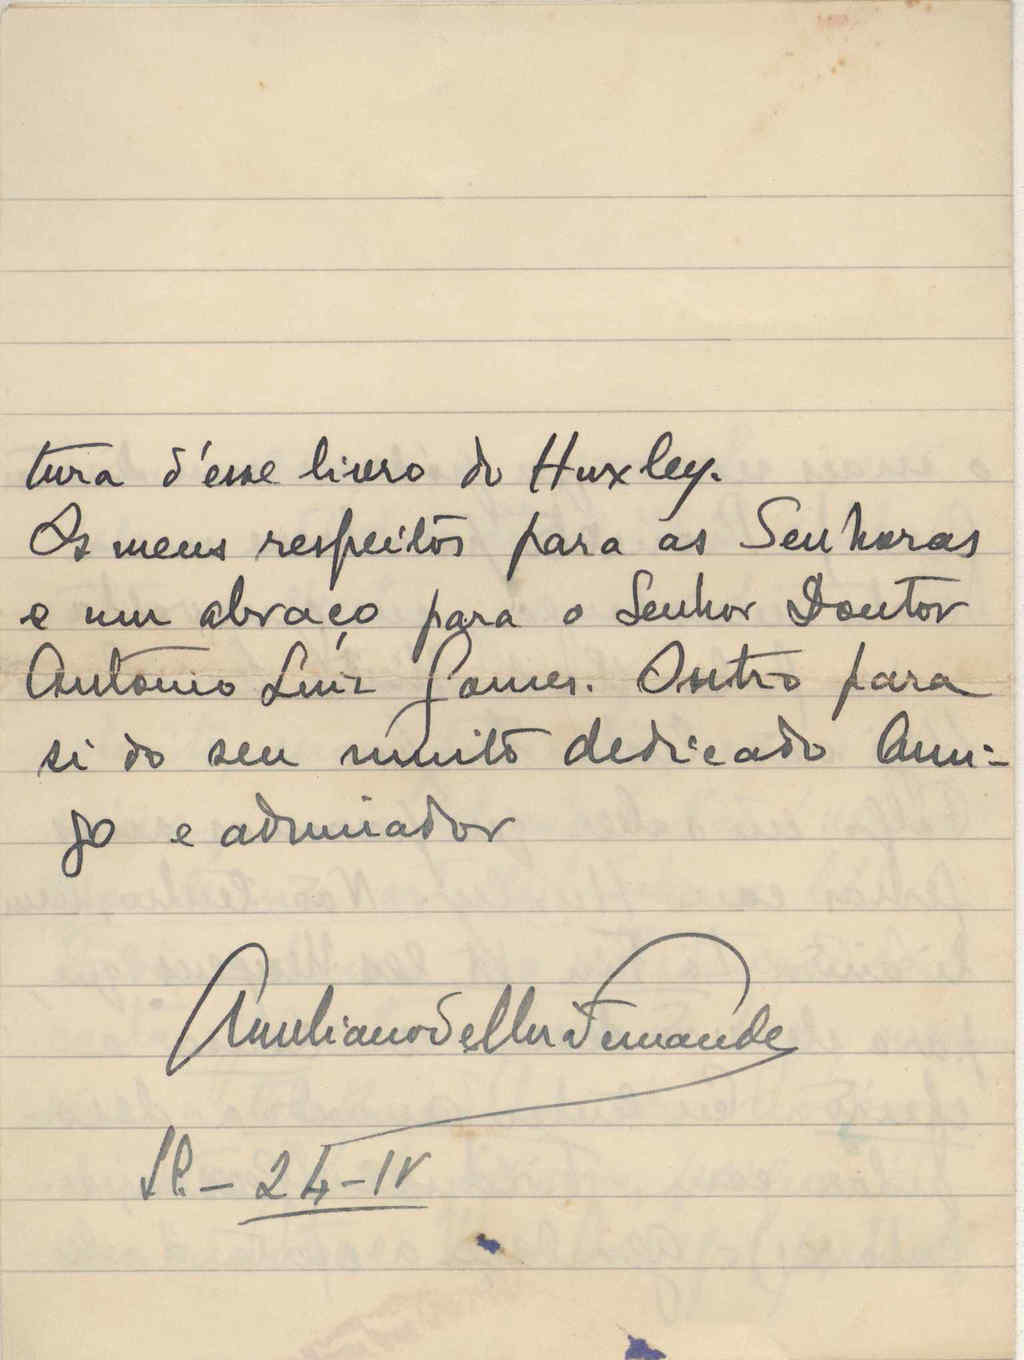 tura d'esse livro do Huxley.
Os meus respeitos para as Senhoras
e um abraço para o Senhor Doutor
António Luiz Gomes. Outro para
si do seu muito dedicado Ami-
go e admirador
Aureliano de Mira Fernandes
24-IV